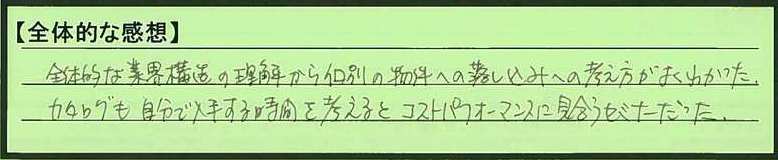 【全体的な感想】
全体的な業界構造の理解から個別の物件への落し込みへの考え方がよくわかった。
カタログも自分で入手する時間を考えるとコストパフォーマンスに見合うセミナーだった。